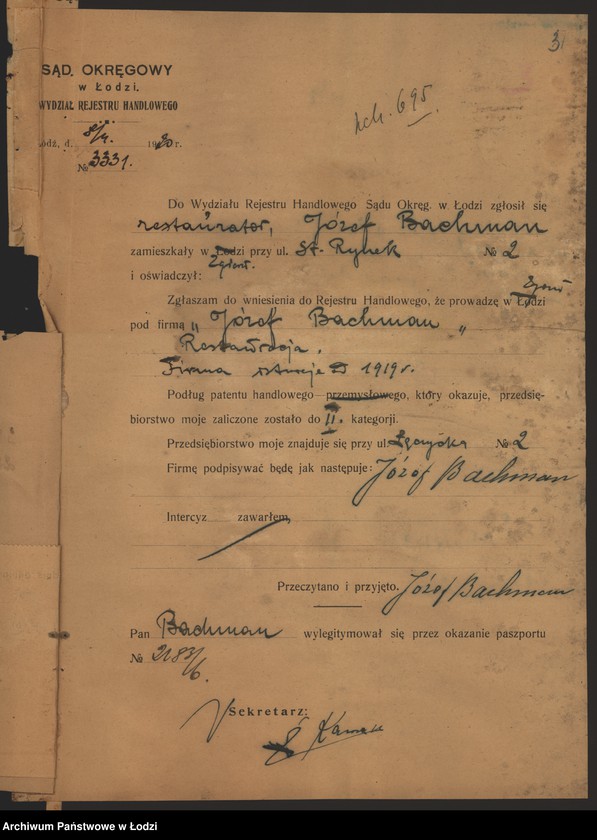 3
SĄD OKRĘGOWY
w Łodzi.
WYDZIAŁ REJESTRU HANDLOWEGO
Łódź, d. 8/4. 1920 r.
№ 3331.
rch. 695
Do Wydziału Rejestru Handlowego Sądu Okręg. w Łodzi zgłosił się
restaurator, Józef Bachman
zamieszkały w Łodzi przy ul. St. Rynek № 2
Zgierz.
i oświadczył:
Zgłaszam do wniesienia do Rejestru Handlowego, że prowadzę w Łodzi
pod firmą „Józef Bachman"
Restauracja.
Firma istnieje od 1919 r.
Podług patentu handlowego—przemysłowego, który okazuje, przedsię-
biorstwo moje zaliczone zostało do II. kategorji.
Przedsiębiorstwo moje znajduje się przy ul. № 2
Firmę podpisywać będę jak następuje: Józef Bachman
Intercyz zawarłem,
Przeczytano i przyjęto. Józef Bachman
Pan Bachman wylegitymował się przez okazanie paszportu
№ 2183/6.
Sekretarz:
Archiwum Państwowe w Łodzi